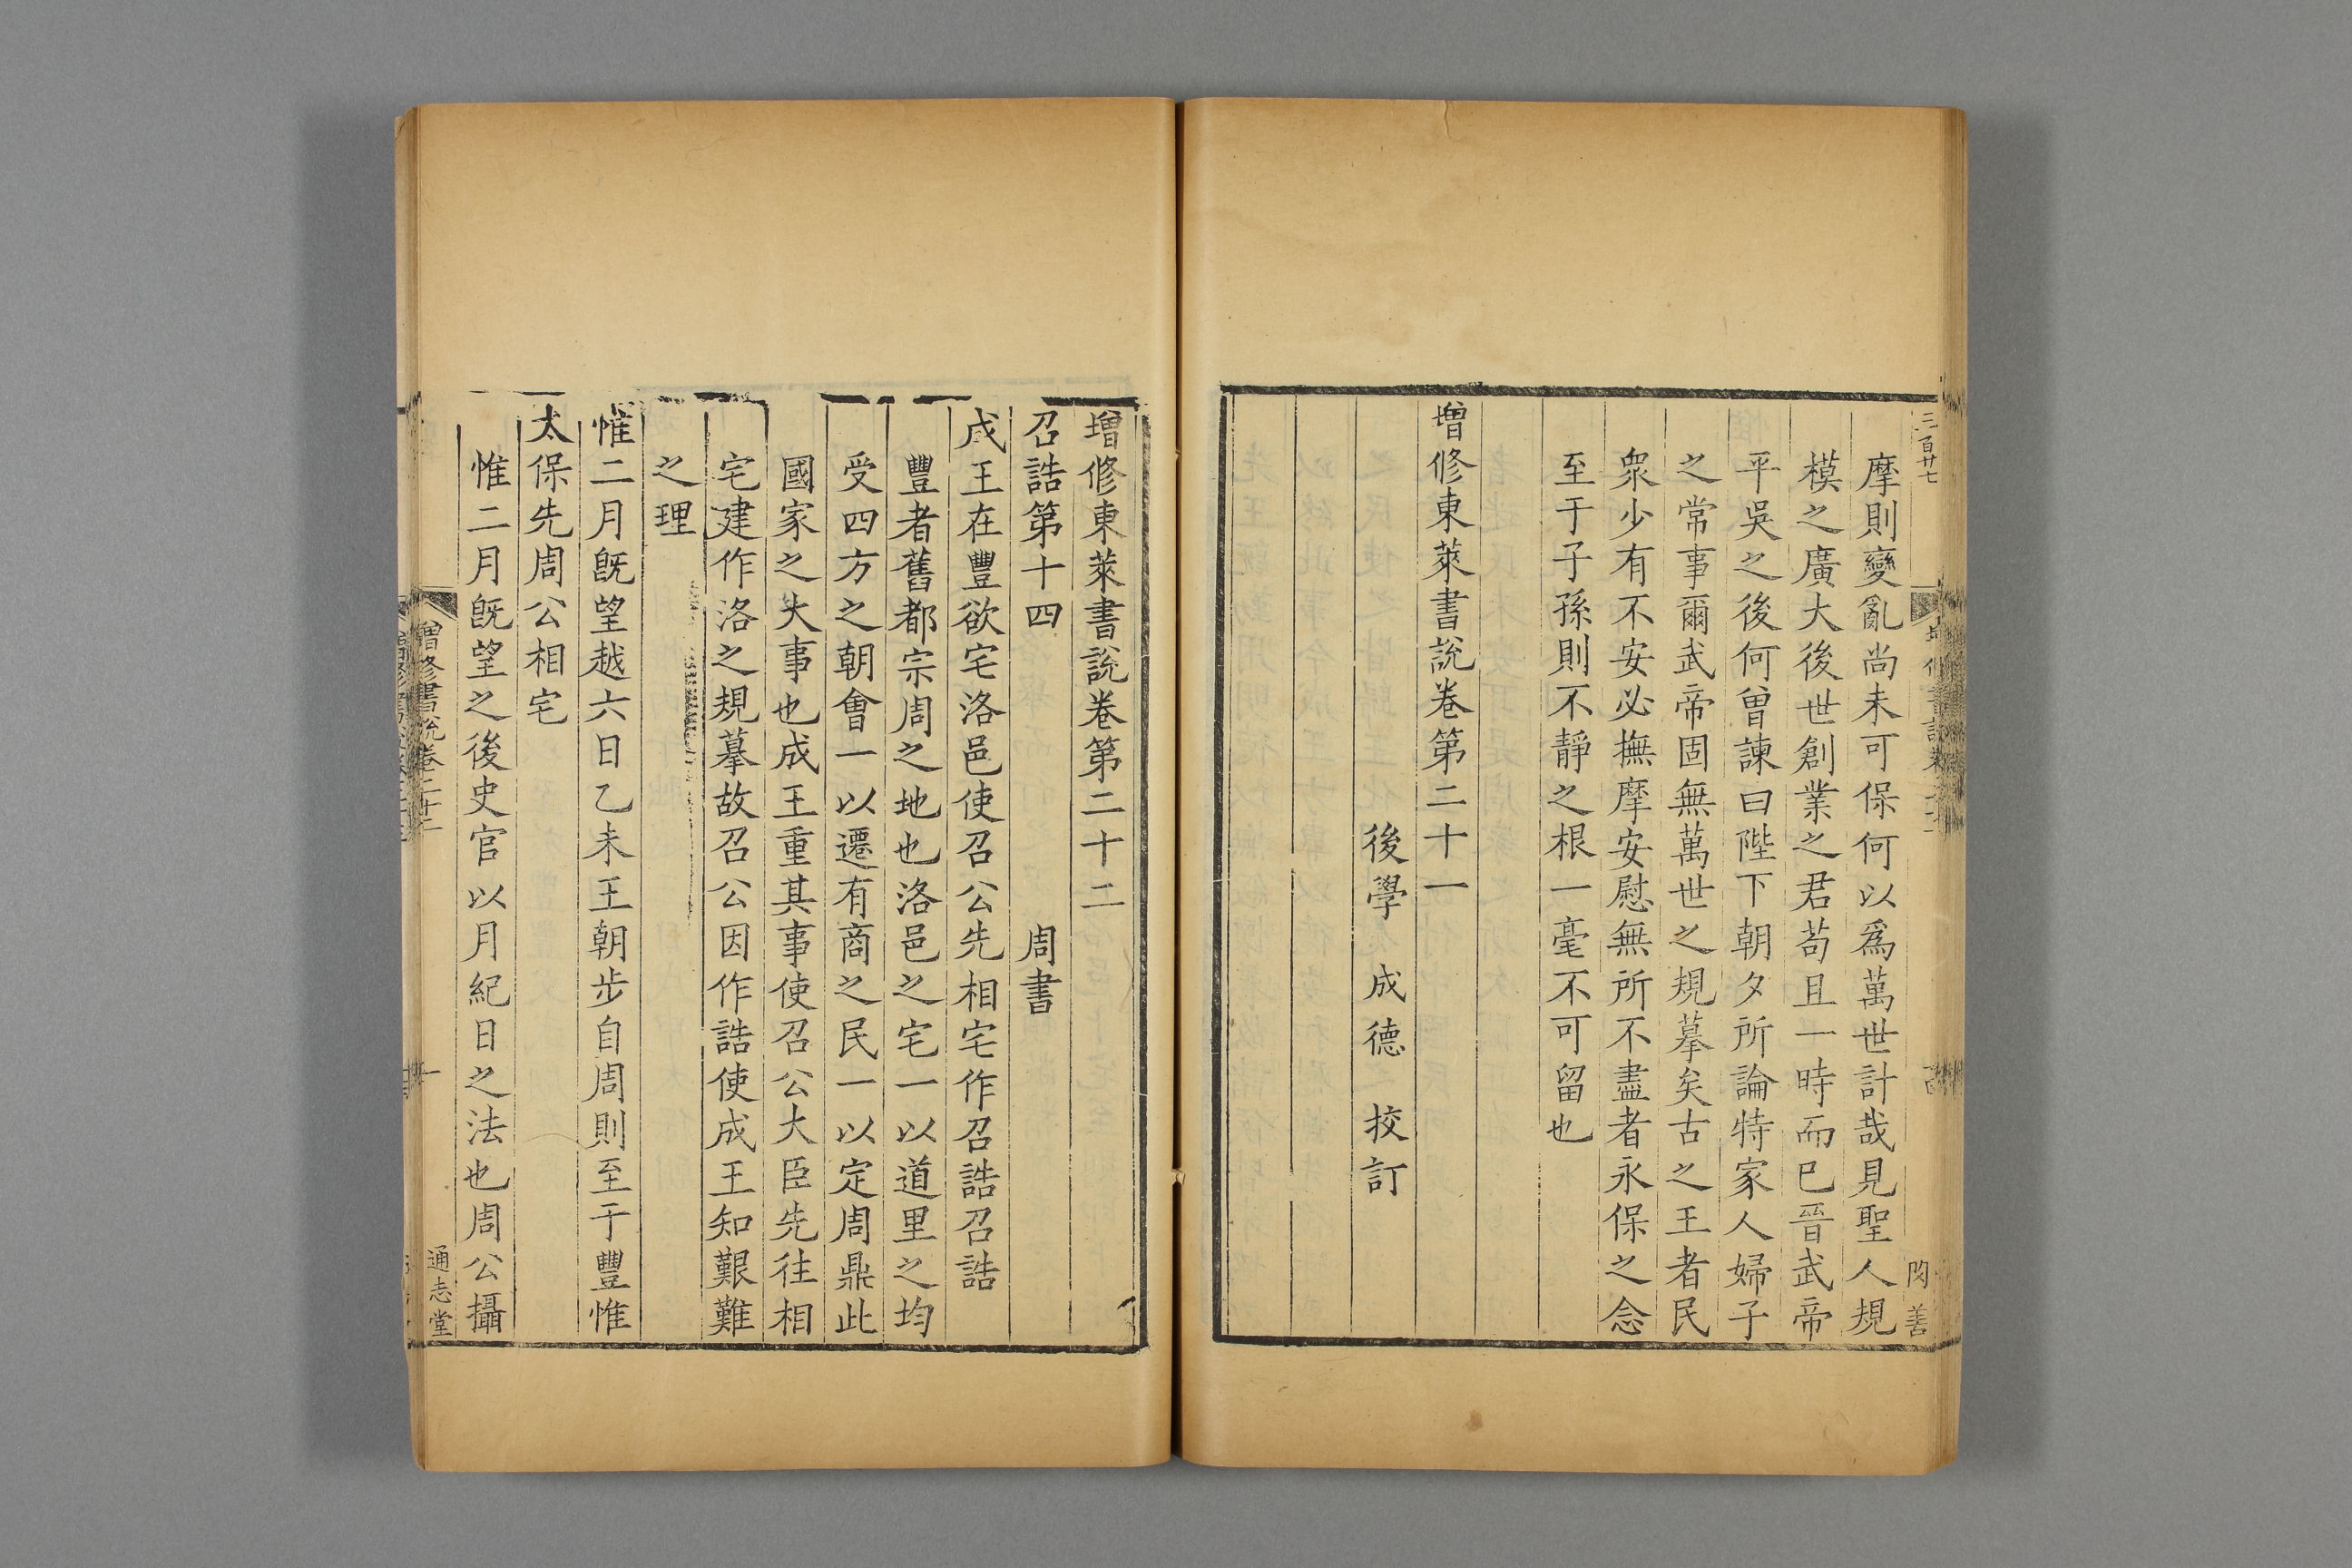 三百廿七
閔善
摩則變亂尚未可保何以爲萬世計哉見聖人規
模之廣大後世創業之君苟且一時而已晉武帝
平吳之後何曾諫曰陛下朝夕所論特家人婦子
之常事爾武帝固無萬世之規摹矣古之王者民
衆少有不安必撫摩安慰無所不盡者永保之念
至于子孫則不靜之根一毫不可留也
增修東萊書說卷第二十一
後學 成德 挍訂
增修東萊書說卷第二十二
召誥第十四 周書
成王在豐欲宅洛邑使召公先相宅作召誥召誥
豐者舊都宗周之地也洛邑之宅一以道里之均
受四方之朝會一以遷有商之民一以定周鼎此
國家之大事也成王重其事使召公大臣先往相
宅建作洛之規摹故召公因作誥使成王知艱難
之理
惟二月旣望越六日乙未王朝步自周則至于豐惟
太保先周公相宅
惟二月旣望之後史官以月紀日之法也周公攝
增修書說卷二十二
一
通志堂